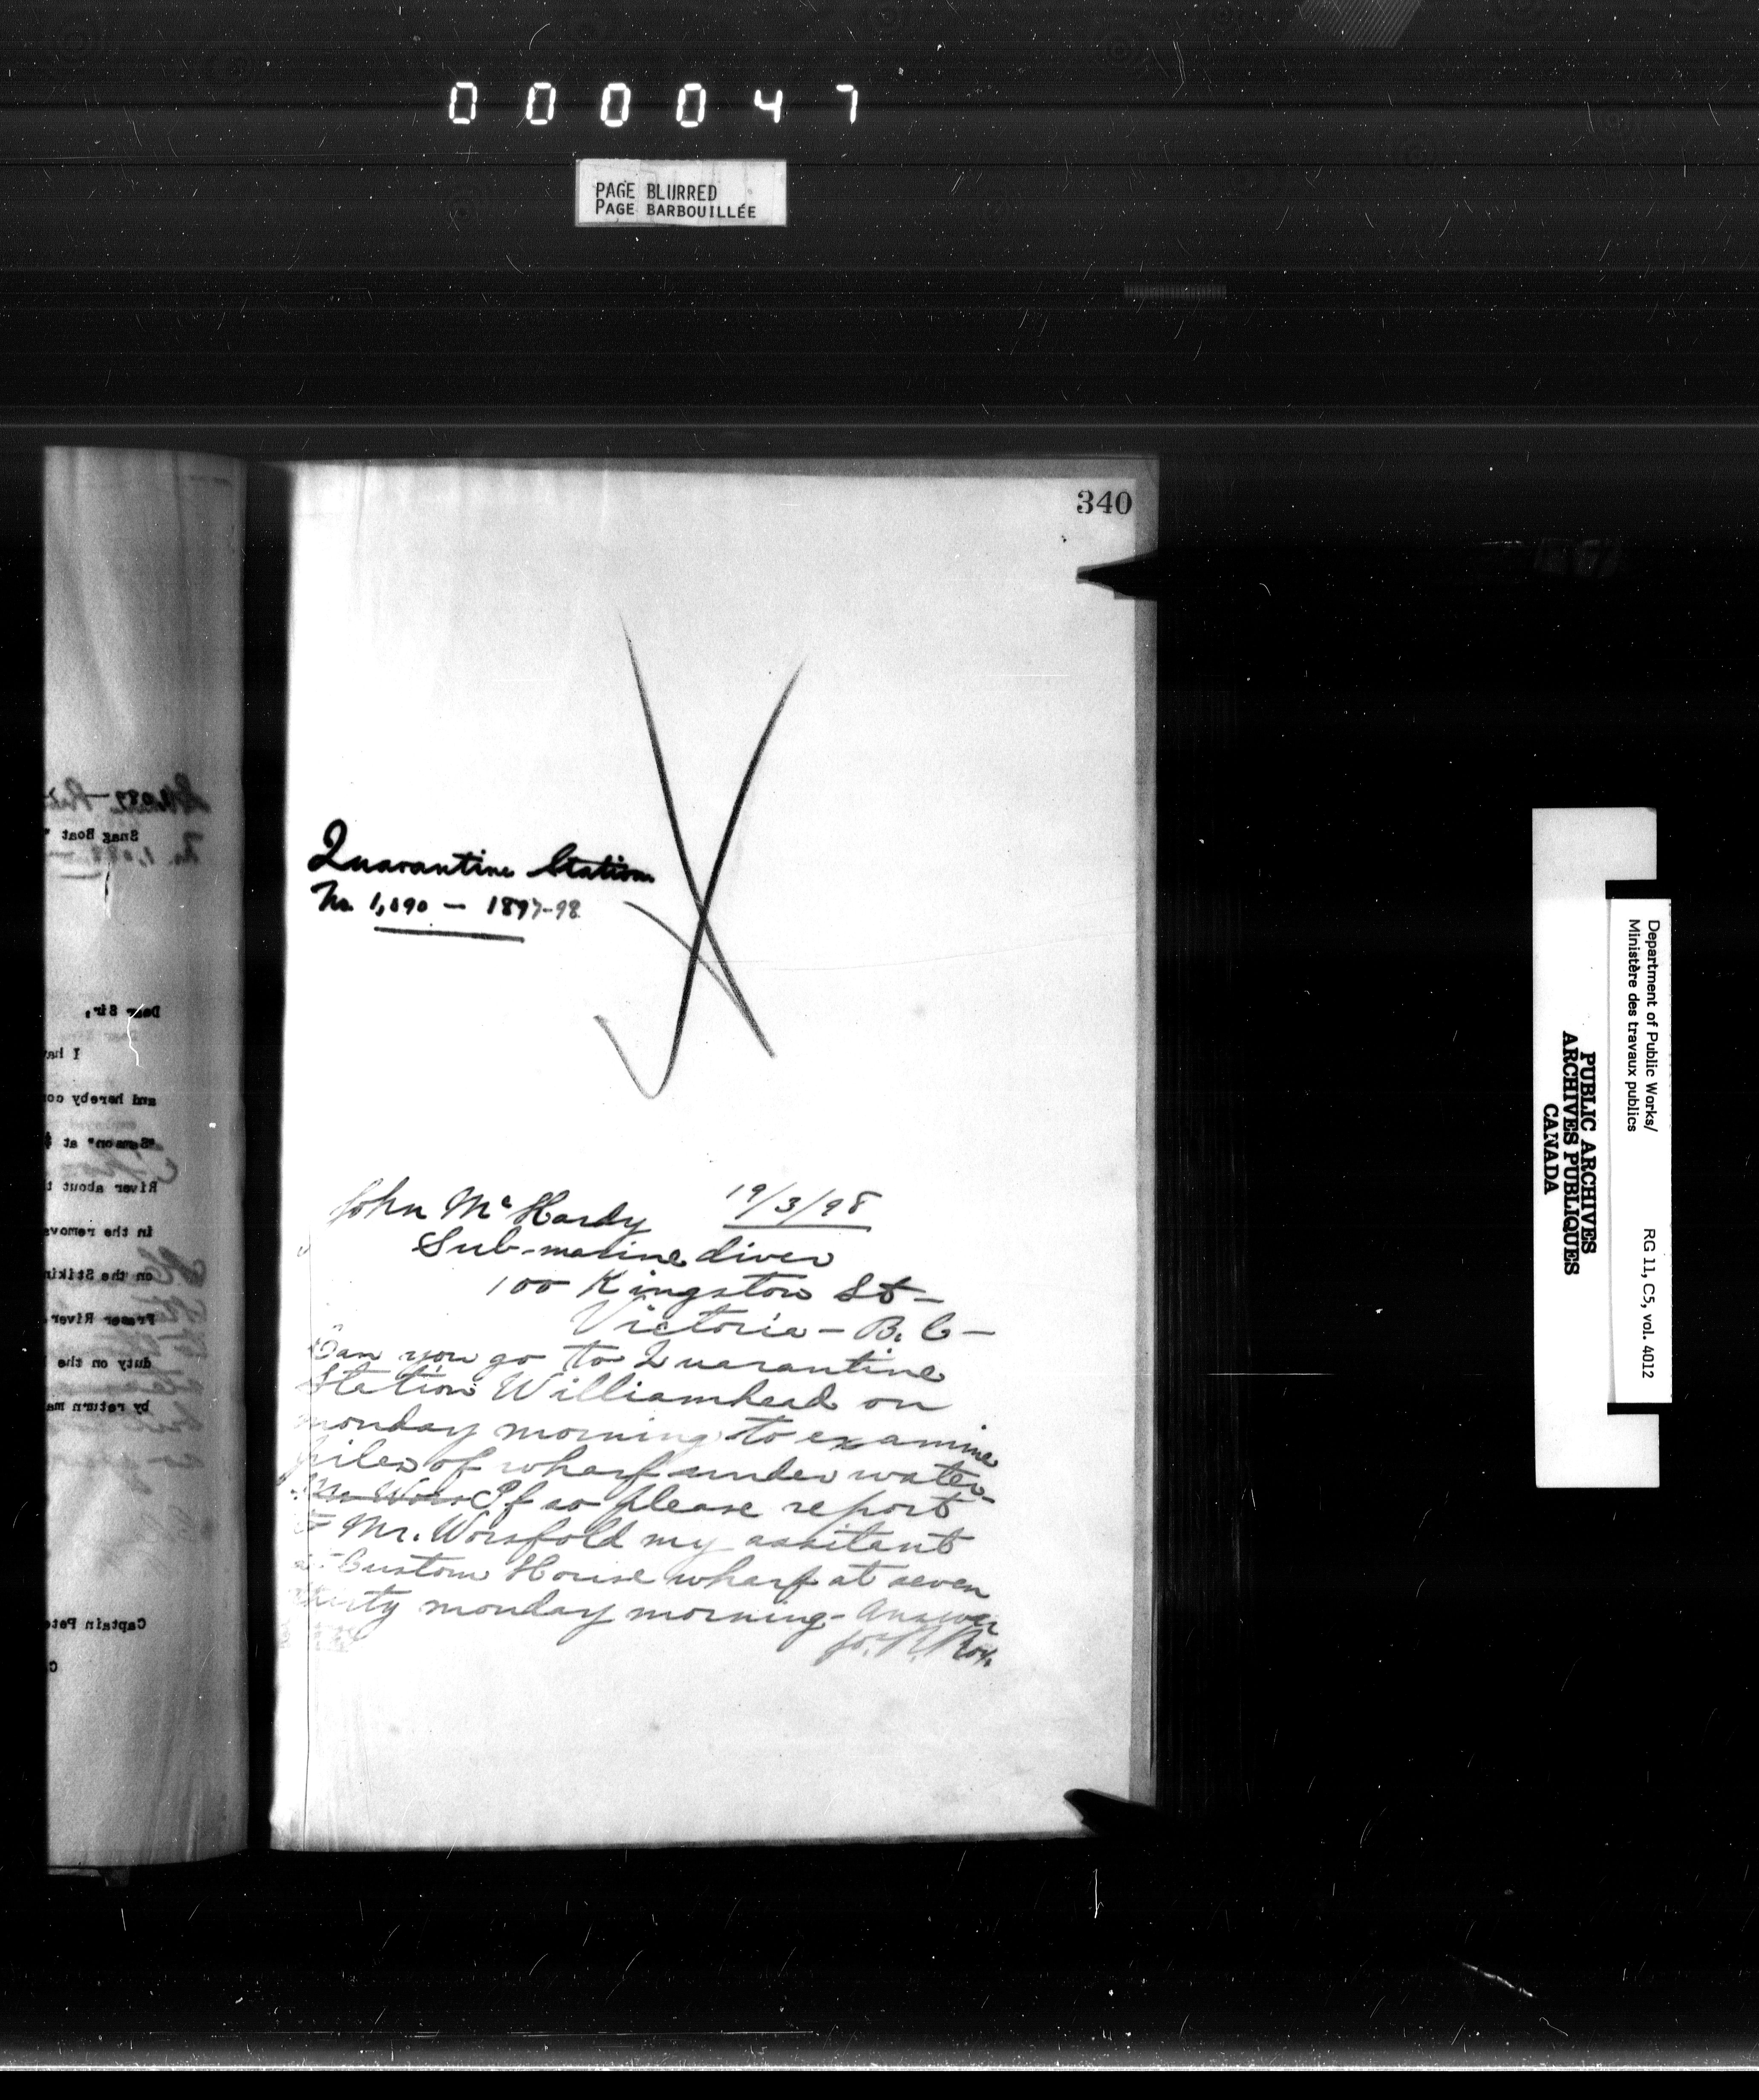 000047
PAGE BLURRED
PAGE BARBOUILLÉE
340
Quarantine Station
No. 1,090 — 1897-98
John McHardy 19/3/98
Sub-marine diver
100 Kingston St —
Victoria — B.C —
Can you go to Quarantine
Station Williamhead on
monday morning to examine
piles of wharf under water.
Mr Wors If so please report
to Mr. Worsfold my assitant
at Custom House wharf at seven
thirty monday morning - Answer
Roy.
Snag Boat "
Dear Sir,
I hav
and hereby con
"Samson" at $
River about t
in the remova
on the Stikin
Fraser River
duty on the
by return ma
Captain Pete
Department of Public Works/
Ministère des travaux publics
RG 11, C5, vol. 4012
PUBLIC ARCHIVES
ARCHIVES PUBLIQUES
CANADA